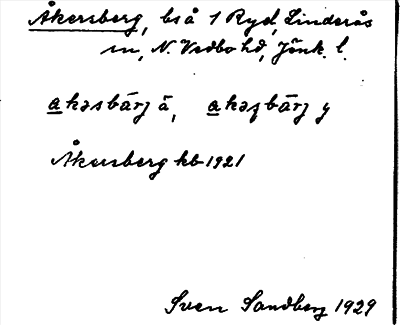 Åkersberg, bs å 1 Ryd, Linderås
sn, N. Vedbo hd, Jönk. l.
akəsbärj ä, akəʂbärj y
Åkersberg kb 1921
Sven Sandberg 1929